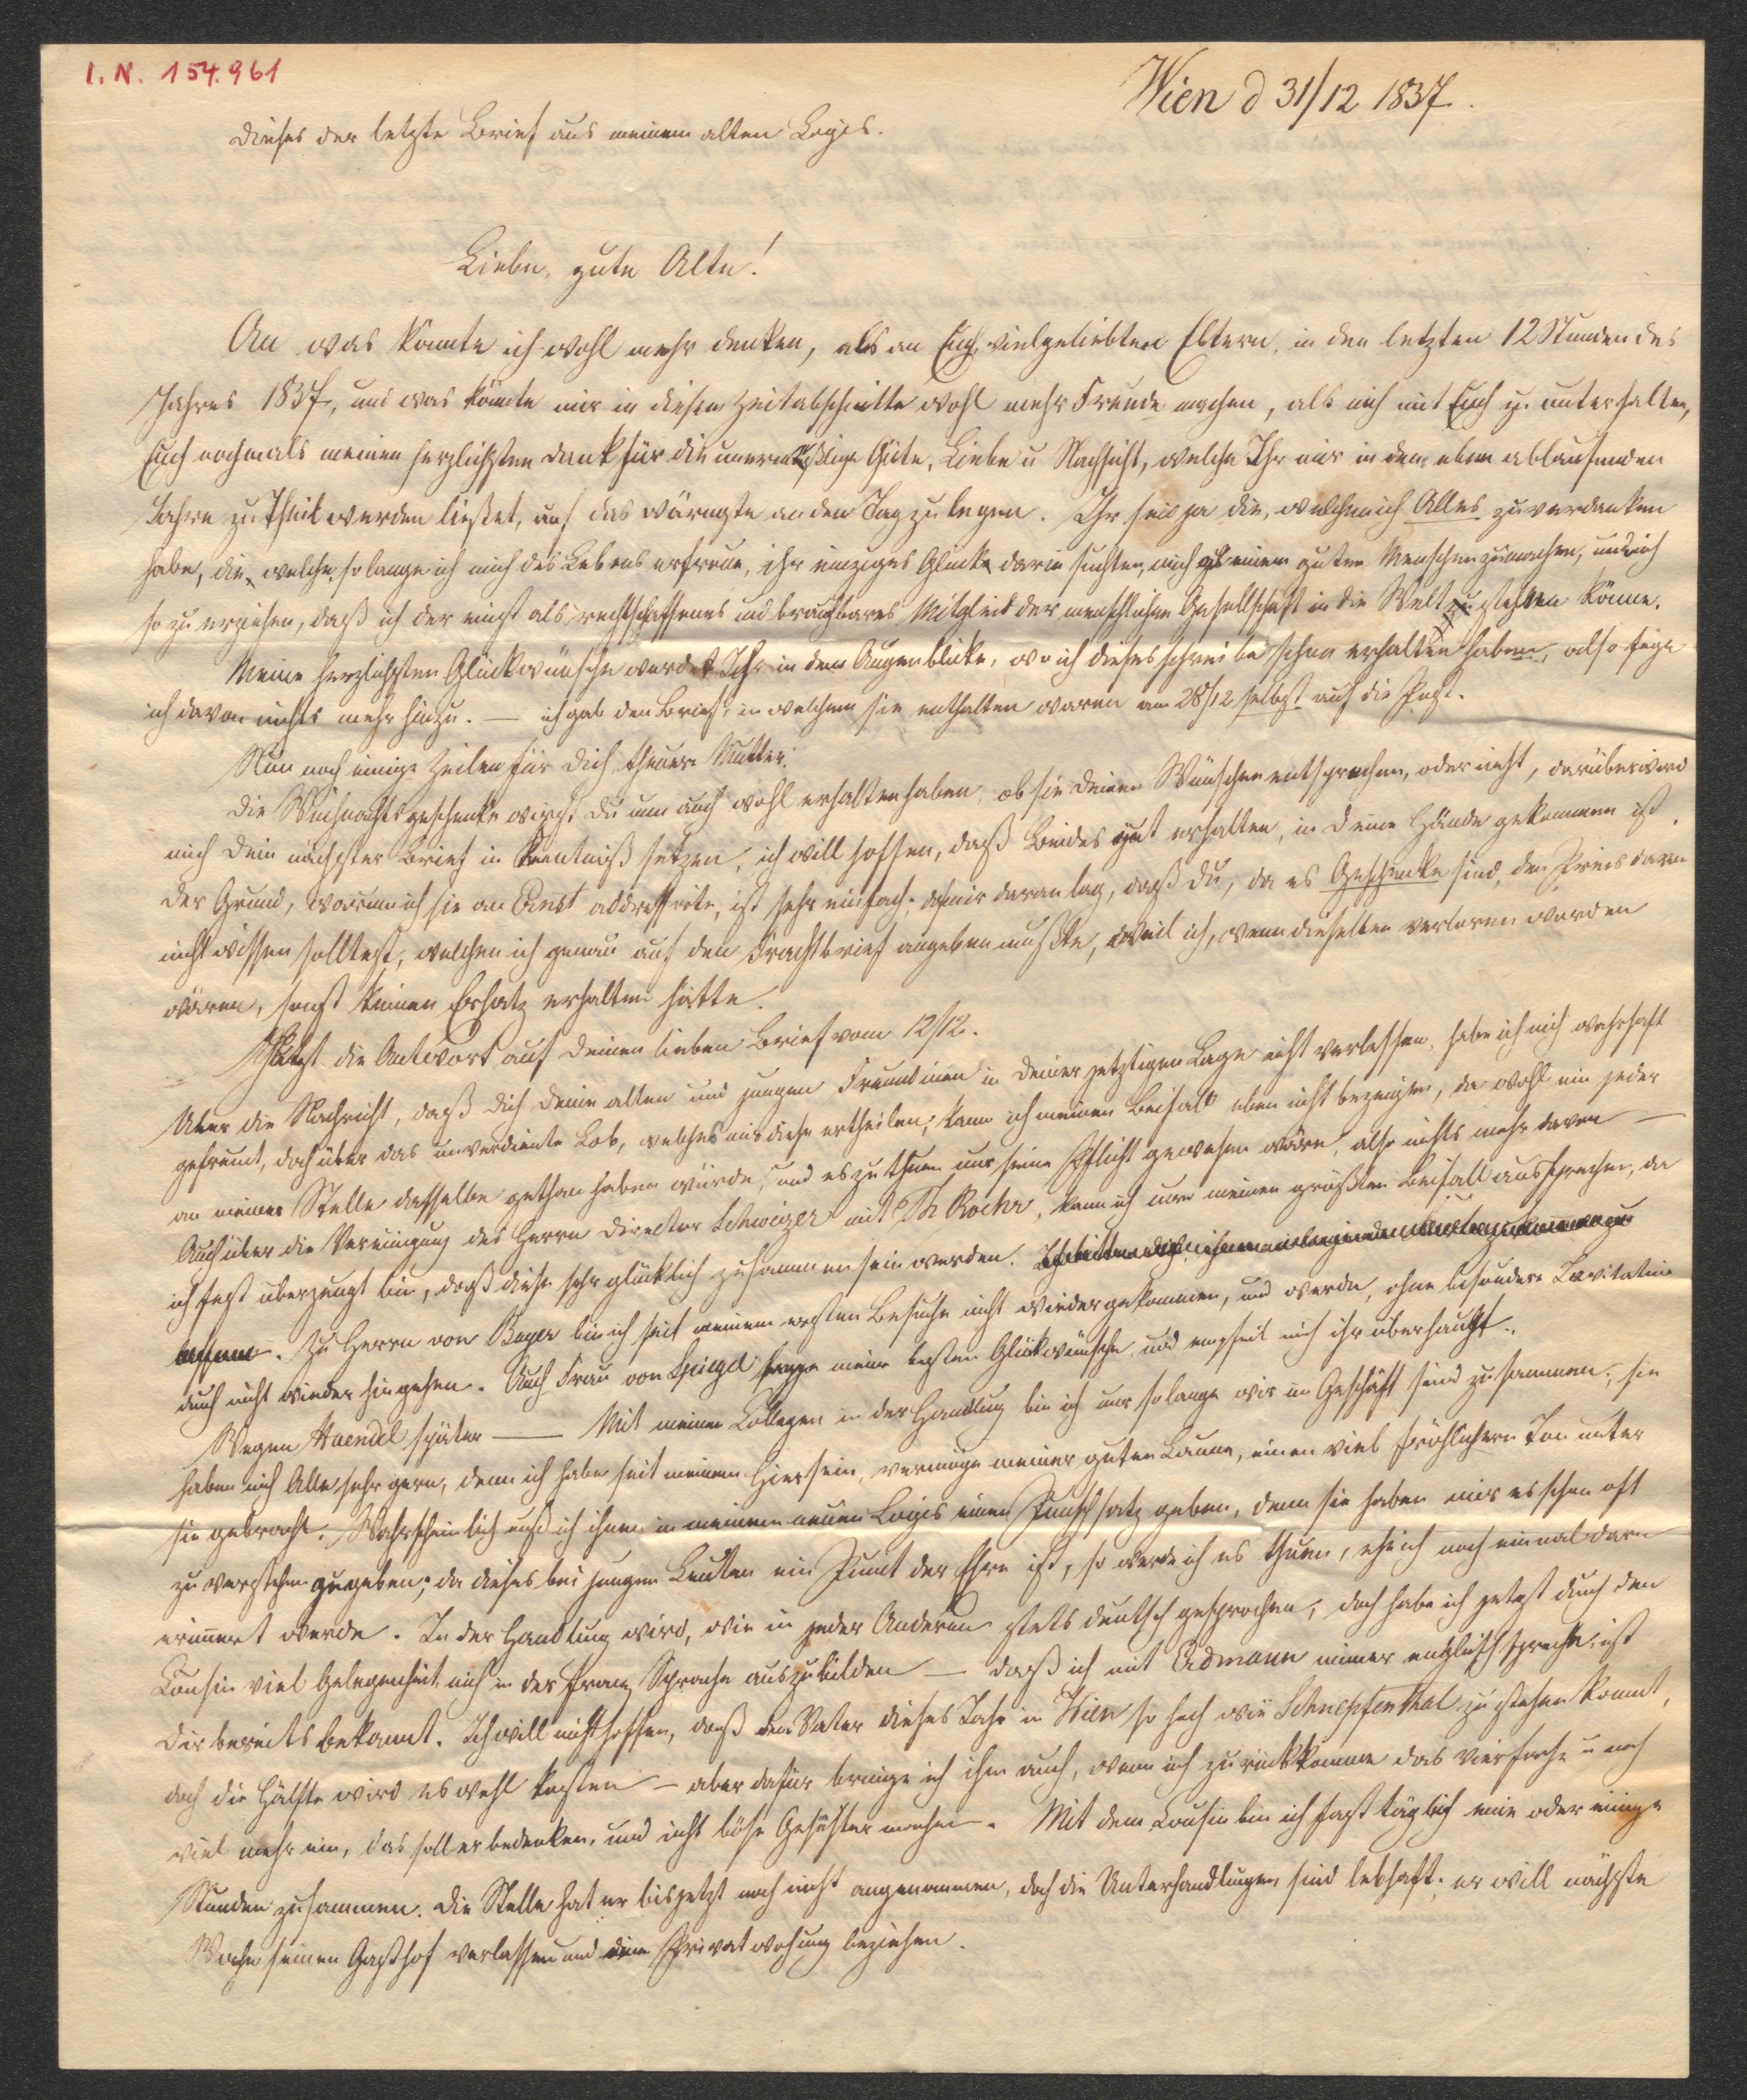 I. N. 154.961
Wien d 31/12 1837.
Dieses der letzte Brief aus meinem alten Logis.
Liebe, gute Alte!
An was könnte ich wohl mehr denken, als an Euch, vielgeliebten Eltern, in den letzten 12 Stunden des
Jahres 1837, und was könnte mir in diesem Zeitabschnitte wohl mehr Freude machen, als mich mit Euch zu unterhalten,
Euch nochmals meinen herzlichsten Dank für die unermeßliche Güte, Liebe u Nachsicht, welche Ihr mir in dem eben ablaufenden
Jahre zu Theil werden ließet, auf das wärmste an den Tag zu legen. Ihr seid ja die, welchen ich Alles zu verdanken
habe, die, welche, so lange ich mich des Lebens erfreue, ihr einziges Glück darin suchten, mich zu einem guten Menschen zu machen, und mich
so zu erziehen, daß ich der einst als rechtschaffenes und brauchbares Mitglied der menschlichen Gesellschaft in die Welt stehen könne.
Meine herzlichsten Glückwünsche werdet Ihr in dem Augenblicke, wo ich dieses schreibe schon erhalten haben, also füge
ich davon nichts mehr hinzu. — ich gab den Brief, in welchem sie enthalten waren am 28/12 selbst auf die Post.
Nun noch einige Zeilen für Dich, theure Mutter.
Die Weihnachtsgeschenke wirst Du nun auch wohl erhalten haben, ob sie Deinen Wünschen entsprechen, oder nicht, darüber wird
mich Dein nächster Brief in Kenntniß setzen, ich will hoffen, daß Beides gut erhalten, in Deine Hände gekommen ist.
Der Grund, warum ich sie an Ernst addressirte, ist sehr einfach, da mir daran lag, daß Du, da es Geschenke sind, den Preis davon
nicht wissen solltest, welchen ich genau auf den Frachtbrief angeben mußte, weil ich, wenn dieselben verloren worden
wären, sonst keinen Ersatz erhalten hätte.
Jetzt die Antwort auf Deinen lieben Brief vom 12/12.
Ueber die Nachricht, daß Dich Deine alten und jungen Freundinen in Deiner jetztigen Lage nicht verlassen, habe ich mich wahrhaft
gefreut, doch über das unverdiente Lob, welches mir diese ertheilen, kann ich meinen Beifall eben nicht bezeigen, da wohl ein jeder
an meiner Stelle dasselbe gethan haben würde, und es zu thun nur seine Pflicht gewesen wäre, also nichts mehr davon —
Auch über die Vereinigung des Herrn Director Schweizer mit Th Rochr, kann ich nur meinen größten Beifall aussprechen, da
ich fest überzeugt bin, daß diese sehr glücklich zusammen sein werden.
Zu Herrn von Beyer bin ich seit meinem ersten Besuche nicht wieder gekommen, und werde, ohne besondere Invitation
auch nicht wieder hingehen. Auch Frau von Spiegel sage meine besten Glückwünsche und empfiel mich ihr überhaupt.
Wegen Haendel später — Mit meinen Collegen in der Handlung bin ich nur so lange wir im Geschäft sind zusammen; sie
haben mich Alle sehr gern, denn ich habe seit meinem Hiersein, vermöge meiner guten Laune, einen viel fröhlichern Ton unter
sie gebracht. Wahrscheinlich muß ich ihnen in meinem neuen Logis einen Punschsatz geben, denn sie haben mir es schon oft
zu verstehen gegeben; da dieses bei jungen Leuten ein Punct der Ehre ist, so werde ich es thuen, ehe ich noch einmal daran
erinnert werde. In der Handlung wird, wie in jeder Anderen stets deutsch gesprochen, doch habe ich jetzt durch den
Cousin viel Gelegenheit mich in der franz Sprache auszubilden — daß ich mit Erdmann immer englisch spreche, ist
Dir bereits bekannt. Ich will nicht hoffen, daß dem Vater dieses Jahr in Wien so hoch wie Schnepfenthal zu stehen kommt,
doch die Hälfte wird es wohl kosten — aber dafür bringe ich ihm auch, wenn ich zurückkomme das vierfache u noch
viel mehr ein, das soll er bedenken, und nicht böse Gesichter machen. Mit dem Cousin bin ich fast täglich eine oder einige
Stunden zusammen. Die Stelle hat er bis jetzt noch nicht angenommen, doch die Unterhandlungen sind lebhaft, er will nächste
Woche seinen Gasthof verlassen und eine Privatwohung beziehen.